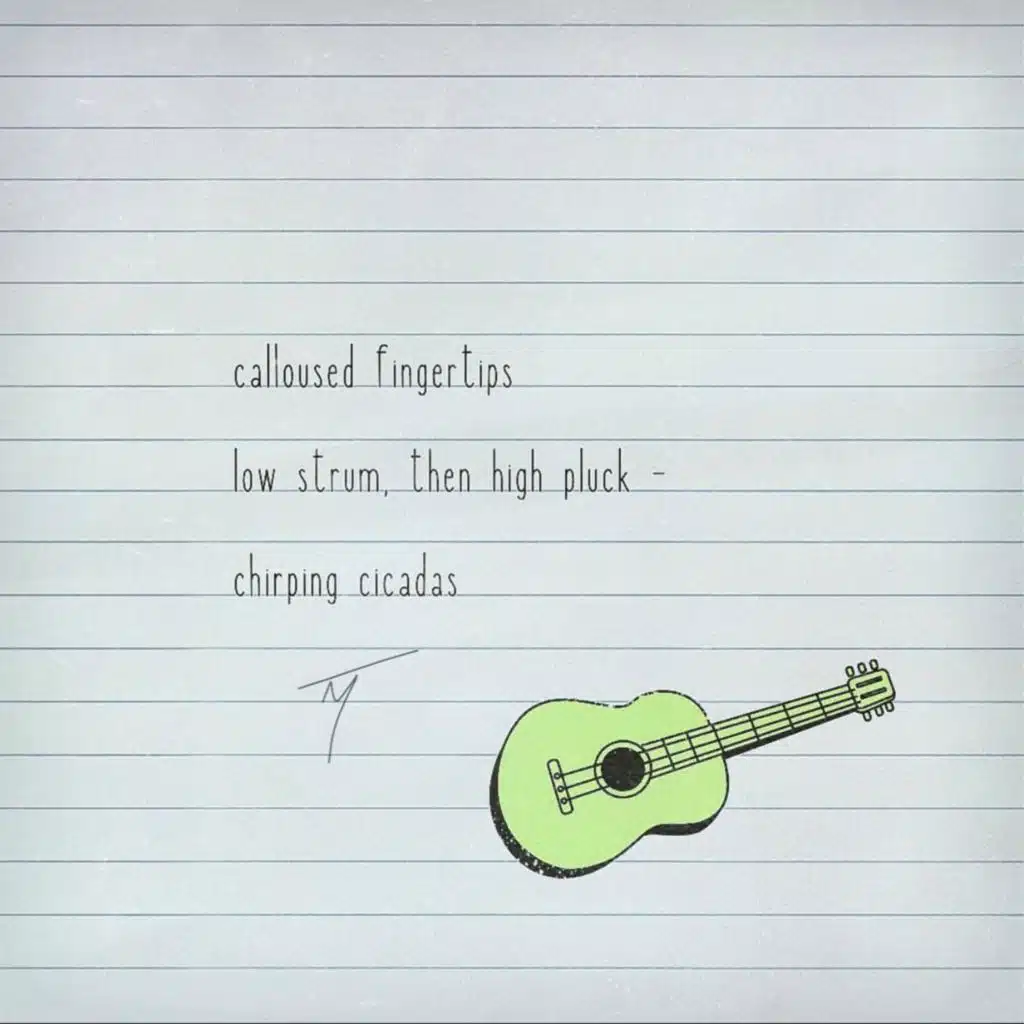 calloused fingertips
low strum, then high pluck -
chirping cicadas